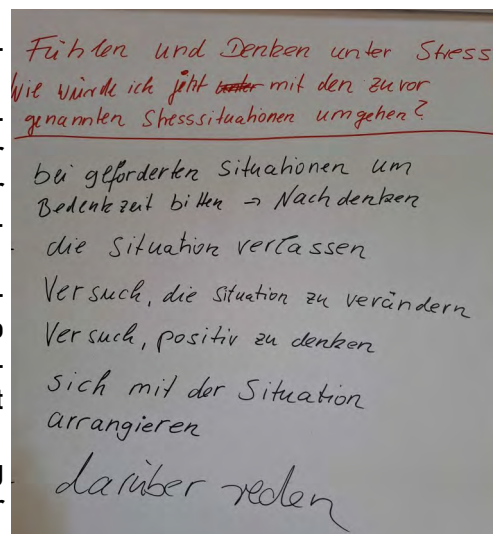 Fühlen und Denken unter Stress
Wie würde ich jetzt unter mit den zuvor
genannten Stresssituationen umgehen?
bei geforderten Situationen um
Bedenkzeit bitten → Nachdenken
die Situation verlassen
Versuch, die Situation zu verändern
Versuch, positiv zu denken
sich mit der Situation
arrangieren
darüber reden